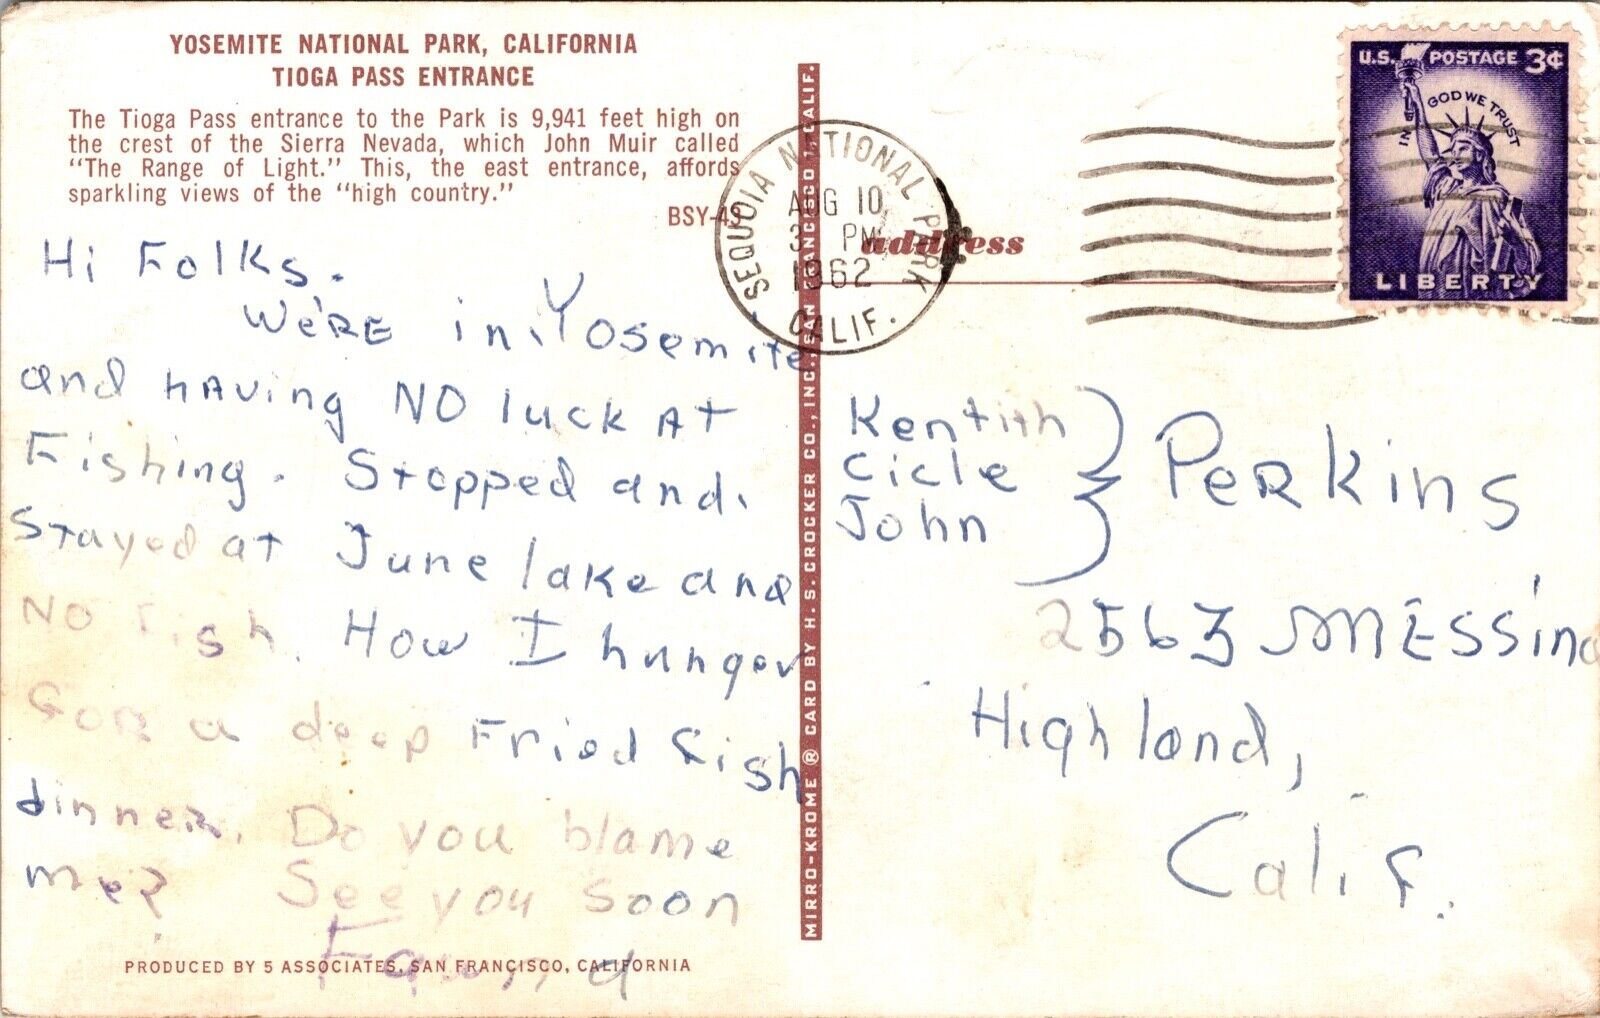 YOSEMITE NATIONAL PARK, CALIFORNIA
TIOGA PASS ENTRANCE
The Tioga Pass entrance to the Park is 9,941 feet high on
the crest of the Sierra Nevada, which John Muir called
"The Range of Light." This, the east entrance, affords
sparkling views of the "high country."
BSY-49
Hi Folks.
We're in Yosemite
and having NO luck at
Fishing. Stopped and
stayed at June lake and
NO Fish. How I hunger
for a deep fried fish
dinner. Do you blame
me? See you soon
PRODUCED BY 5 ASSOCIATES, SAN FRANCISCO, CALIFORNIA
MIRRO-KROME ® CARD BY H. S. CROCKER CO., INC., SAN FRANCISCO 1, CALIF.
SEQUOIA NATIONAL PARK
AUG 10
3 PM
1962
CALIF.
address
U.S. POSTAGE 3¢
IN GOD WE TRUST
LIBERTY
Kentith
Cicle
John
Perkins
2563 Messina
Highland,
Calif.